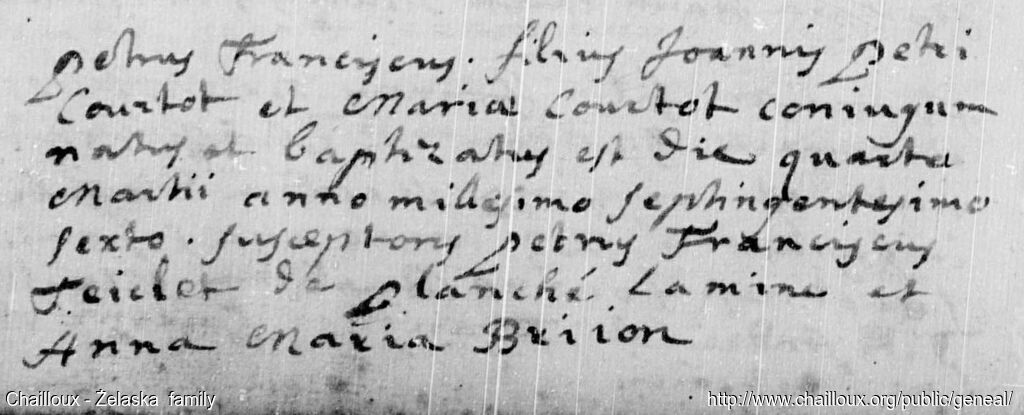 Petrus Franciscus. filius Joannis Petri
Courtot et Mariæ Courtot coniugum
natus et baptizatus est die quarta
Martii anno millesimo septingentesimo
sexto. susceptoris Petrus Franciscus
Feiclet de Planché Lamine et
Anna Maria Briion
Chailloux - Żelaska family
http://www.chailloux.org/public/geneal/